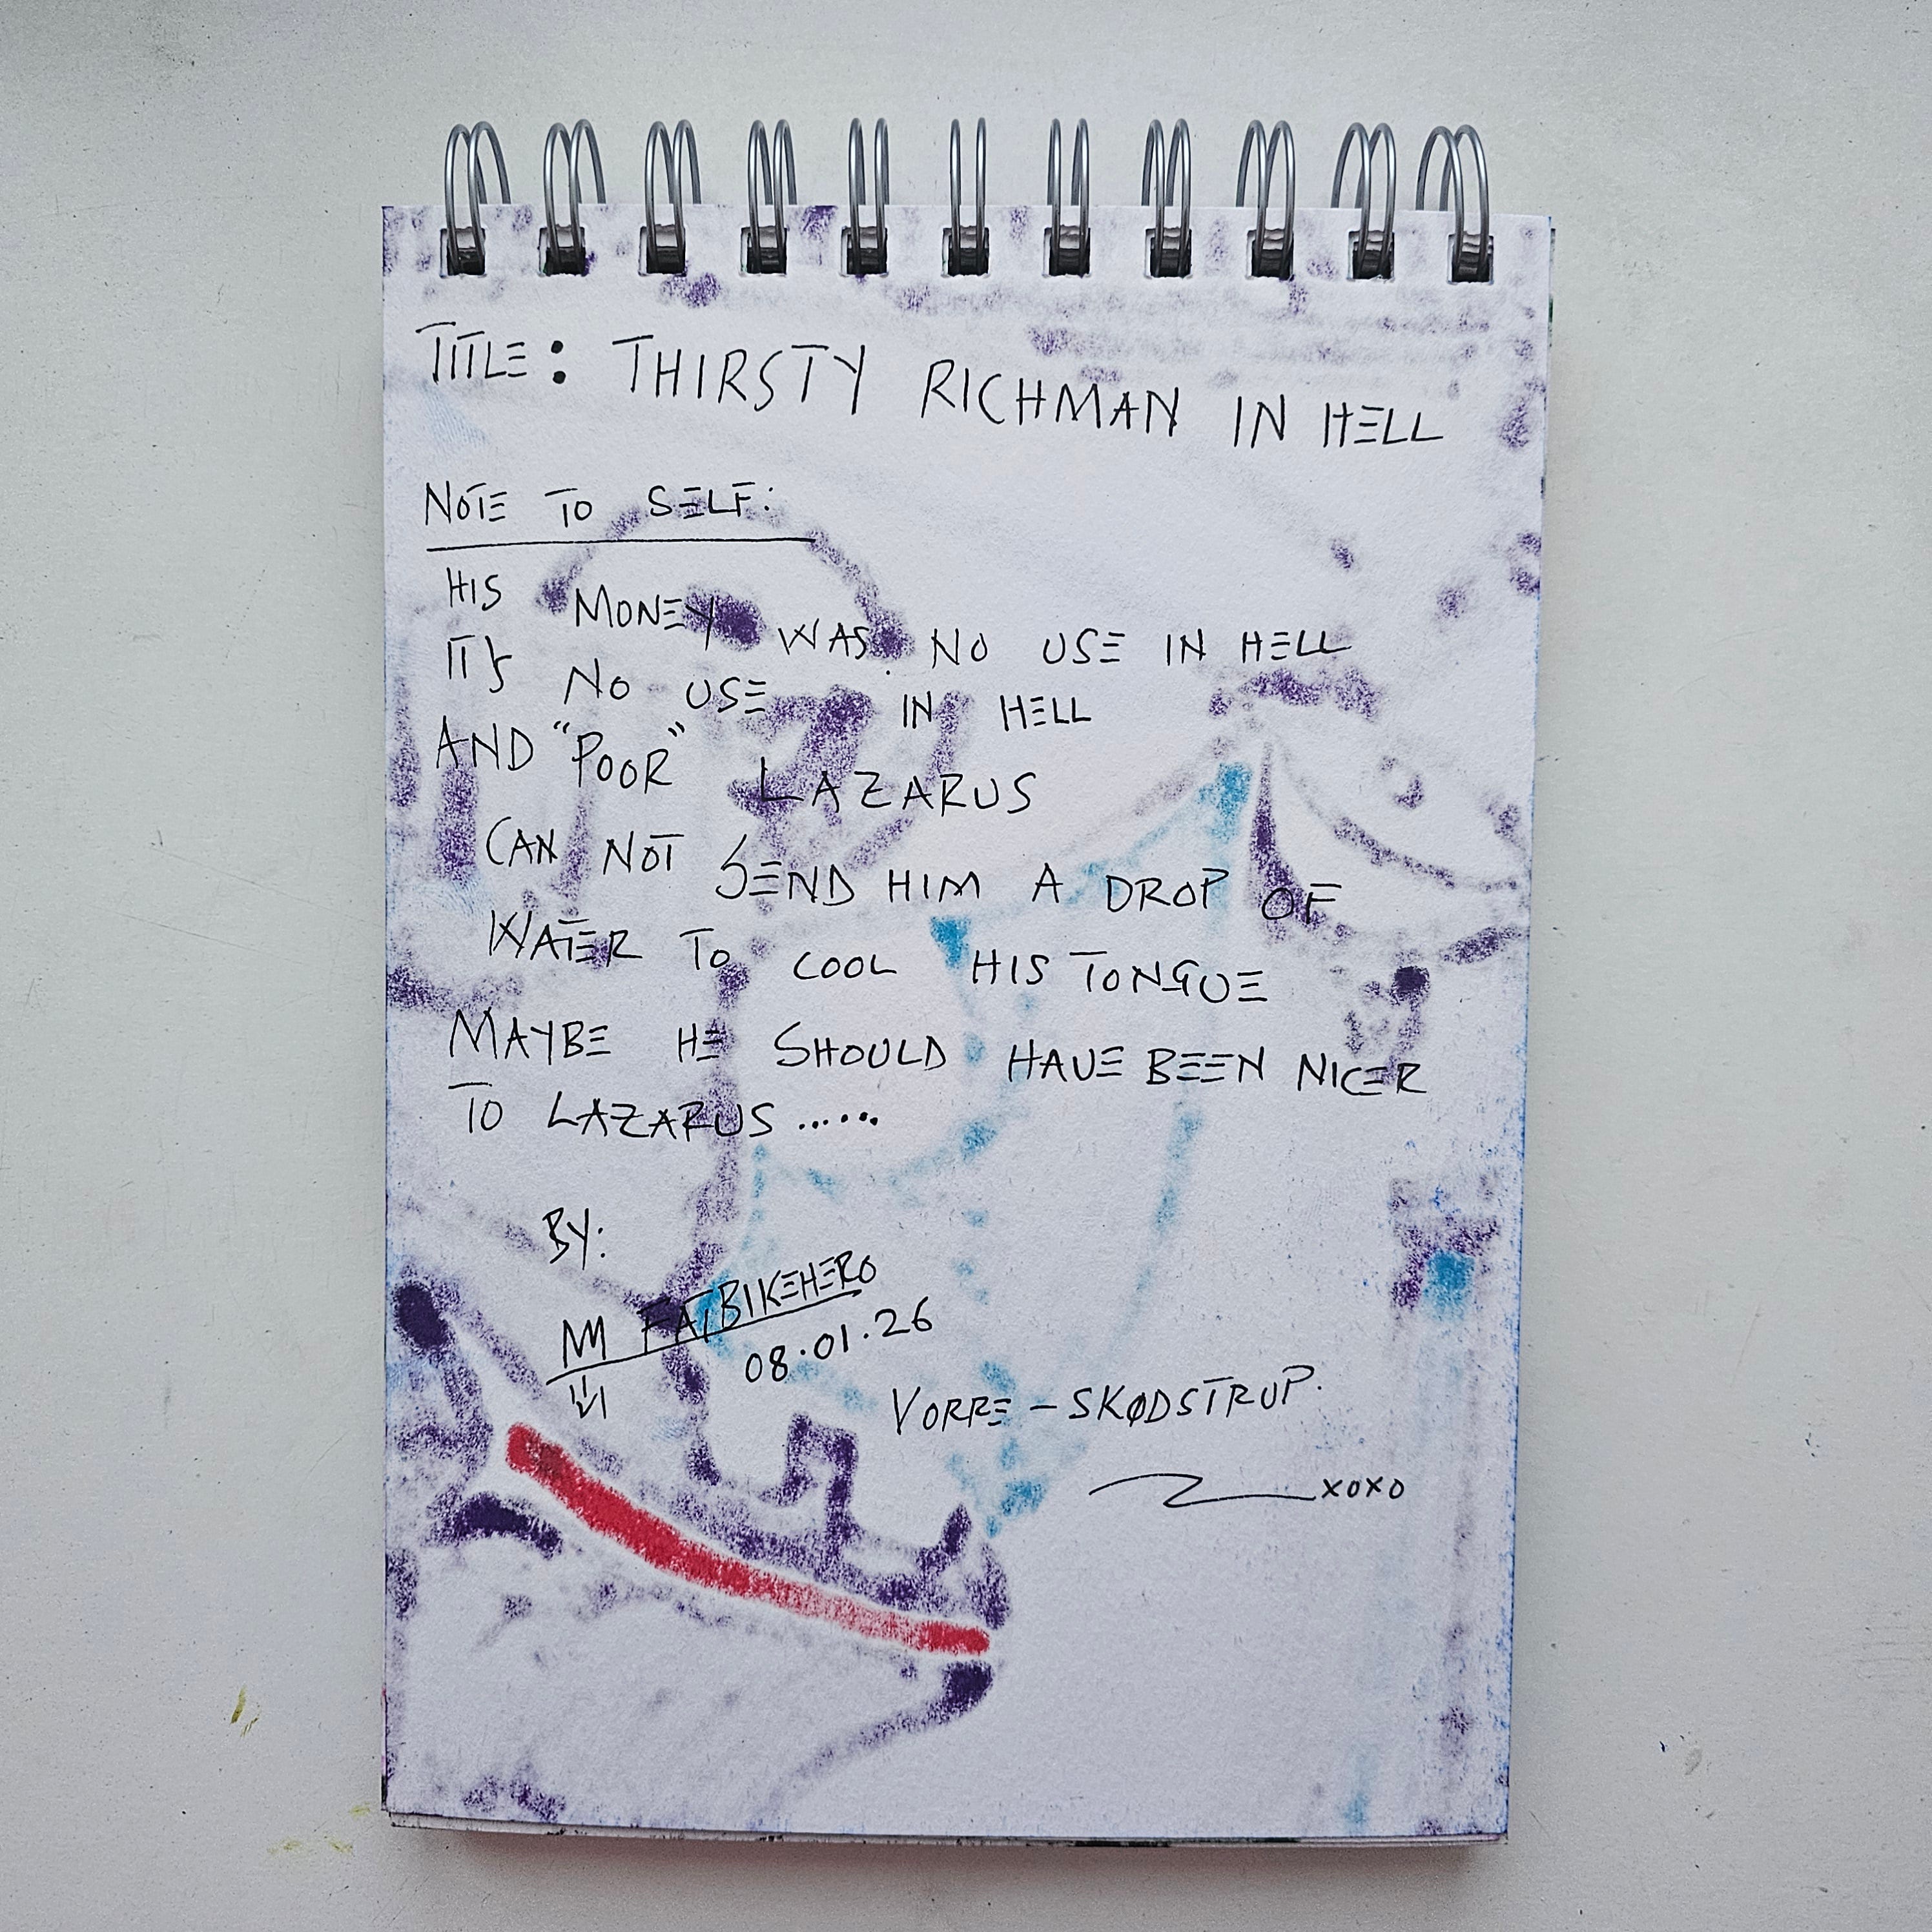 TITLE: THIRSTY RICHMAN IN HELL
NOTE TO SELF:
HIS MONEY WAS NO USE IN HELL
IT'S NO USE IN HELL
AND "POOR" LAZARUS
CAN NOT SEND HIM A DROP OF
WATER TO COOL HIS TONGUE
MAYBE HE SHOULD HAVE BEEN NICER
TO LAZARUS.....
BY:
FATBIKEHERO
08.01.26
VORRE - SKØDSTRUP.
XOXO